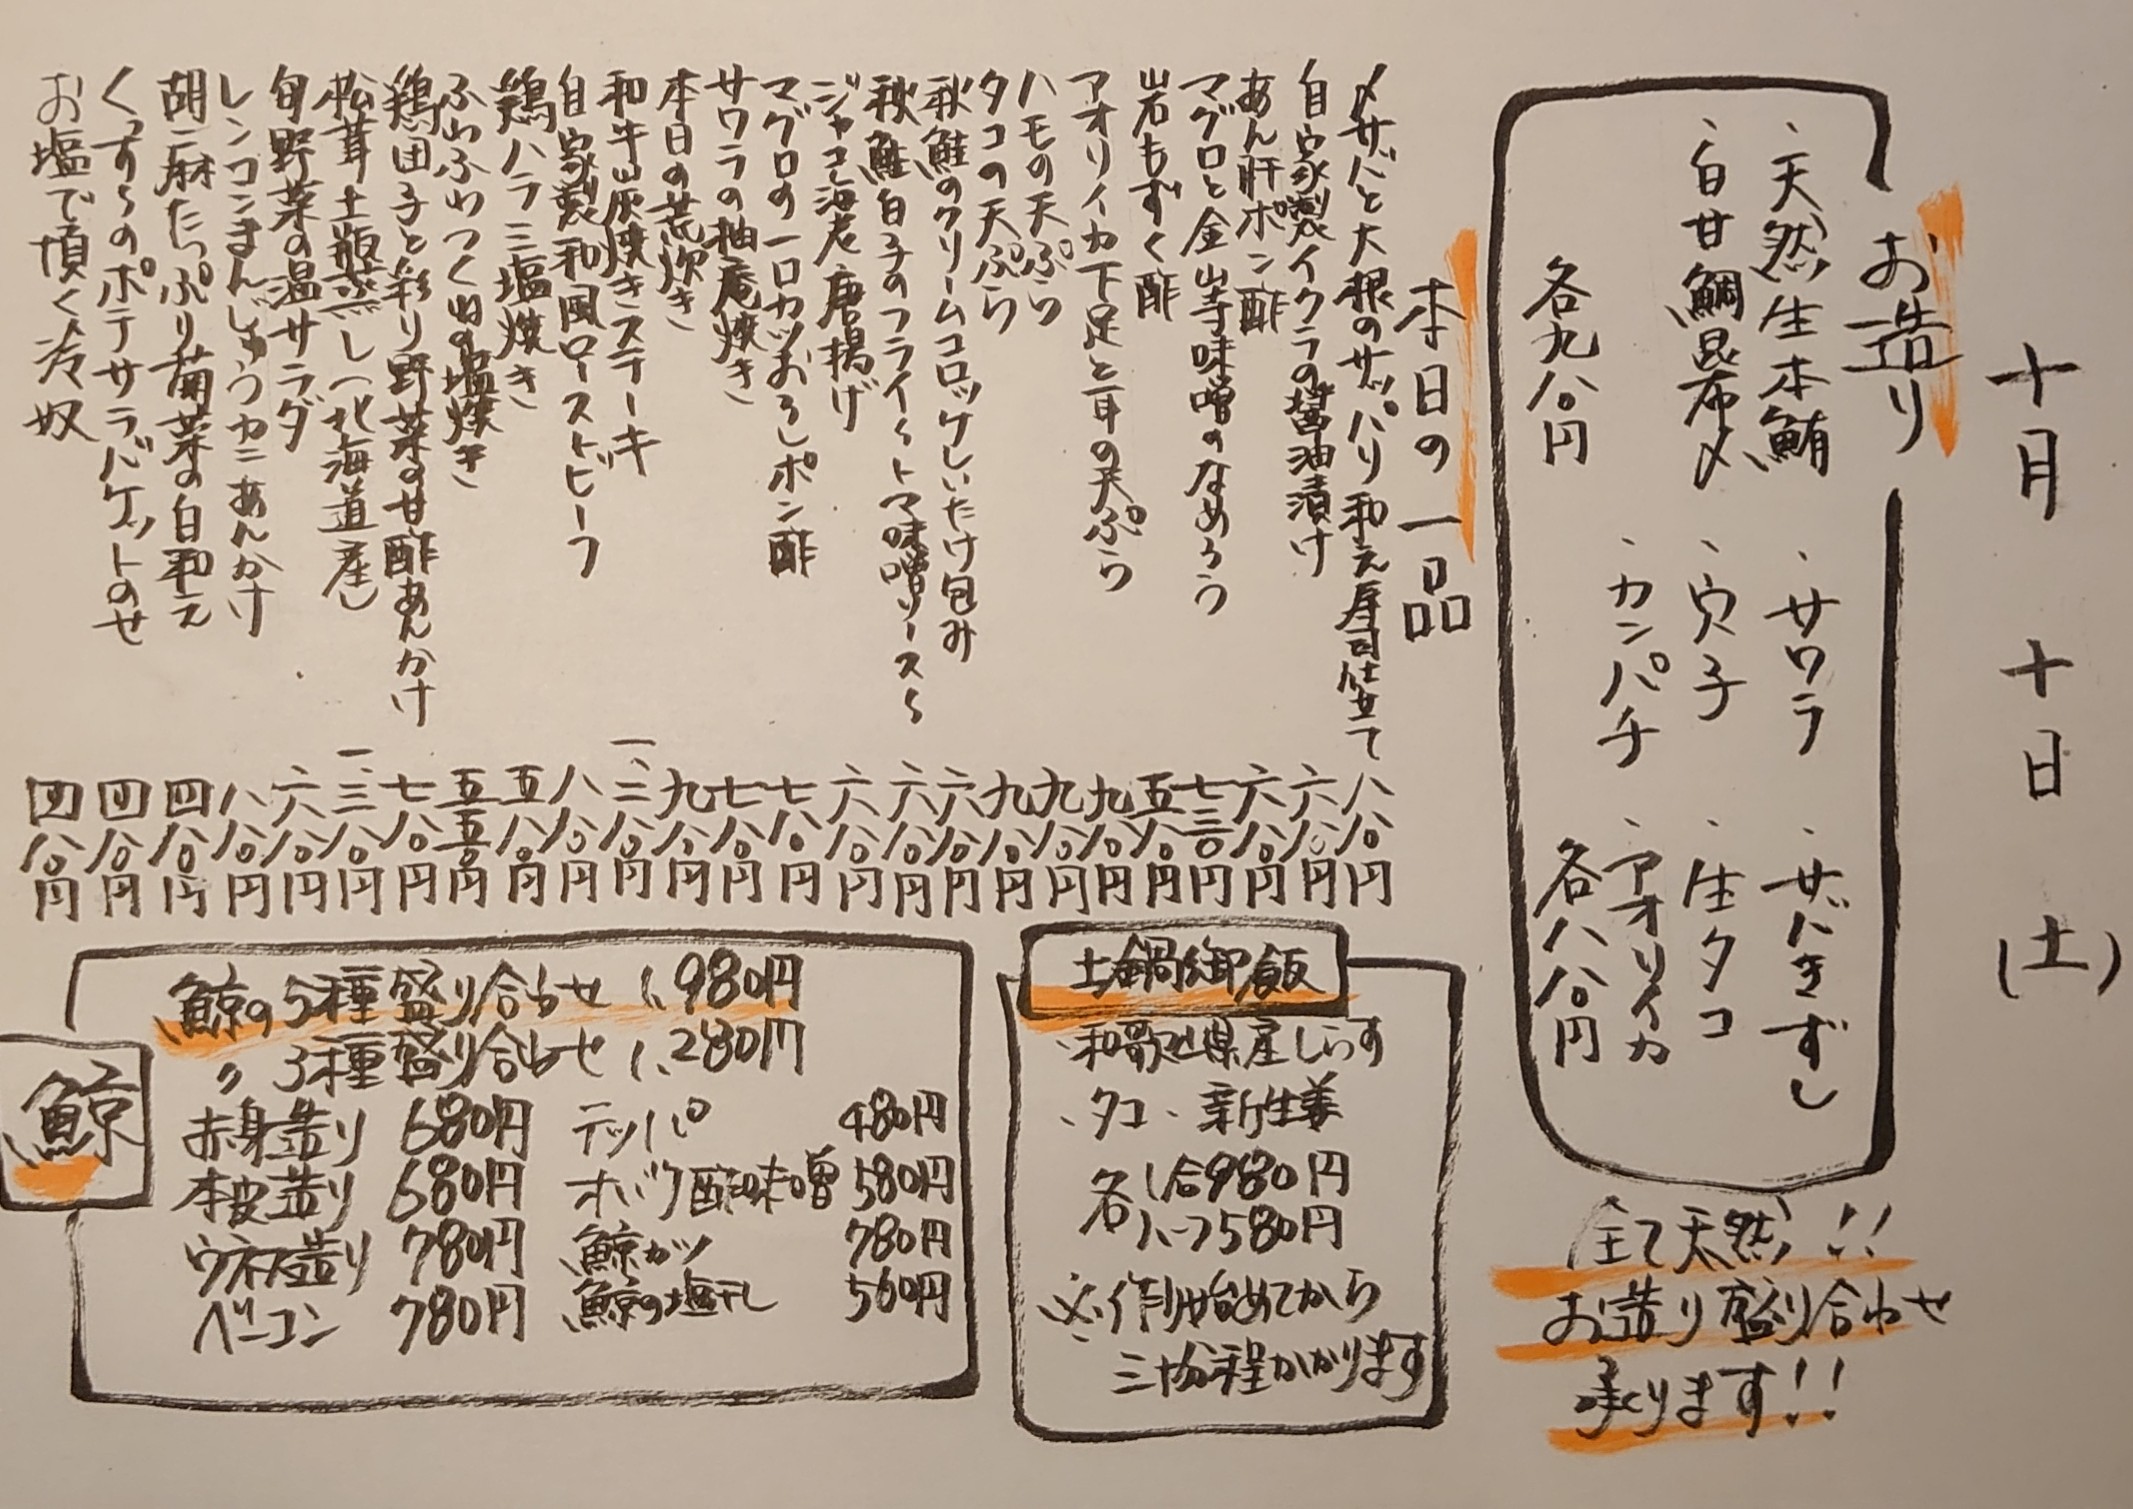 十月十日(土)
お造り
、天然生本鮪
、白甘鯛昆布〆
各九八〇円
、サワラ
、穴子
、カンパチ
、サバきずし
、生タコ
、アオリイカ
各八八〇円
全て天然!!
お造り盛り合わせ
承ります!!
本日の一品
〆サバと大根のサッパリ和え寿司仕立て 八八〇円
自家製イクラの醤油漬け 六八〇円
あん肝ポン酢 六八〇円
マグロと金山寺味噌のなめろう 七三〇円
岩もずく酢 五八〇円
アオリイカ下足と耳の天ぷら 九八〇円
ハモの天ぷら 九八〇円
タコの天ぷら 九八〇円
秋鮭のクリームコロッケしいたけ包み 六八〇円
秋鮭白子のフライ〜トマト味噌ソース〜 六八〇円
ジャコ海老唐揚げ 六八〇円
マグロの一口カツおろしポン酢 七八〇円
サワラの柚庵焼き 七八〇円
本日の荒炊き 九八〇円
和牛山灰焼きステーキ 一、二八〇円
自家製和風ローストビーフ 八八〇円
鶏ハラミ塩焼き 五八〇円
ふわふわつくねの塩焼き 五五〇円
鶏団子と彩り野菜の甘酢あんかけ 七八〇円
松茸土瓶蒸し(北海道産) 一、三八〇円
旬野菜の温サラダ 六八〇円
レンコンまんじゅうカニあんかけ 八八〇円
胡麻たっぷり菊菜の白和え 四八〇円
くっすらのポテサラバケットのせ 四八〇円
お塩で頂く冷奴 四八〇円
土鍋御飯
、和歌山県産しらす
、タコ、新生姜
各一合980円
各ハーフ580円
※作り始めてから
三十分程かかります
鯨
鯨の5種盛り合わせ 1、980円
〃 3種盛り合わせ 1、280円
赤身造り 680円
本皮造り 680円
ウネス造り 780円
ベーコン 780円
テッパ 480円
オバケ酢味噌 580円
鯨カツ 780円
鯨の塩干し 560円